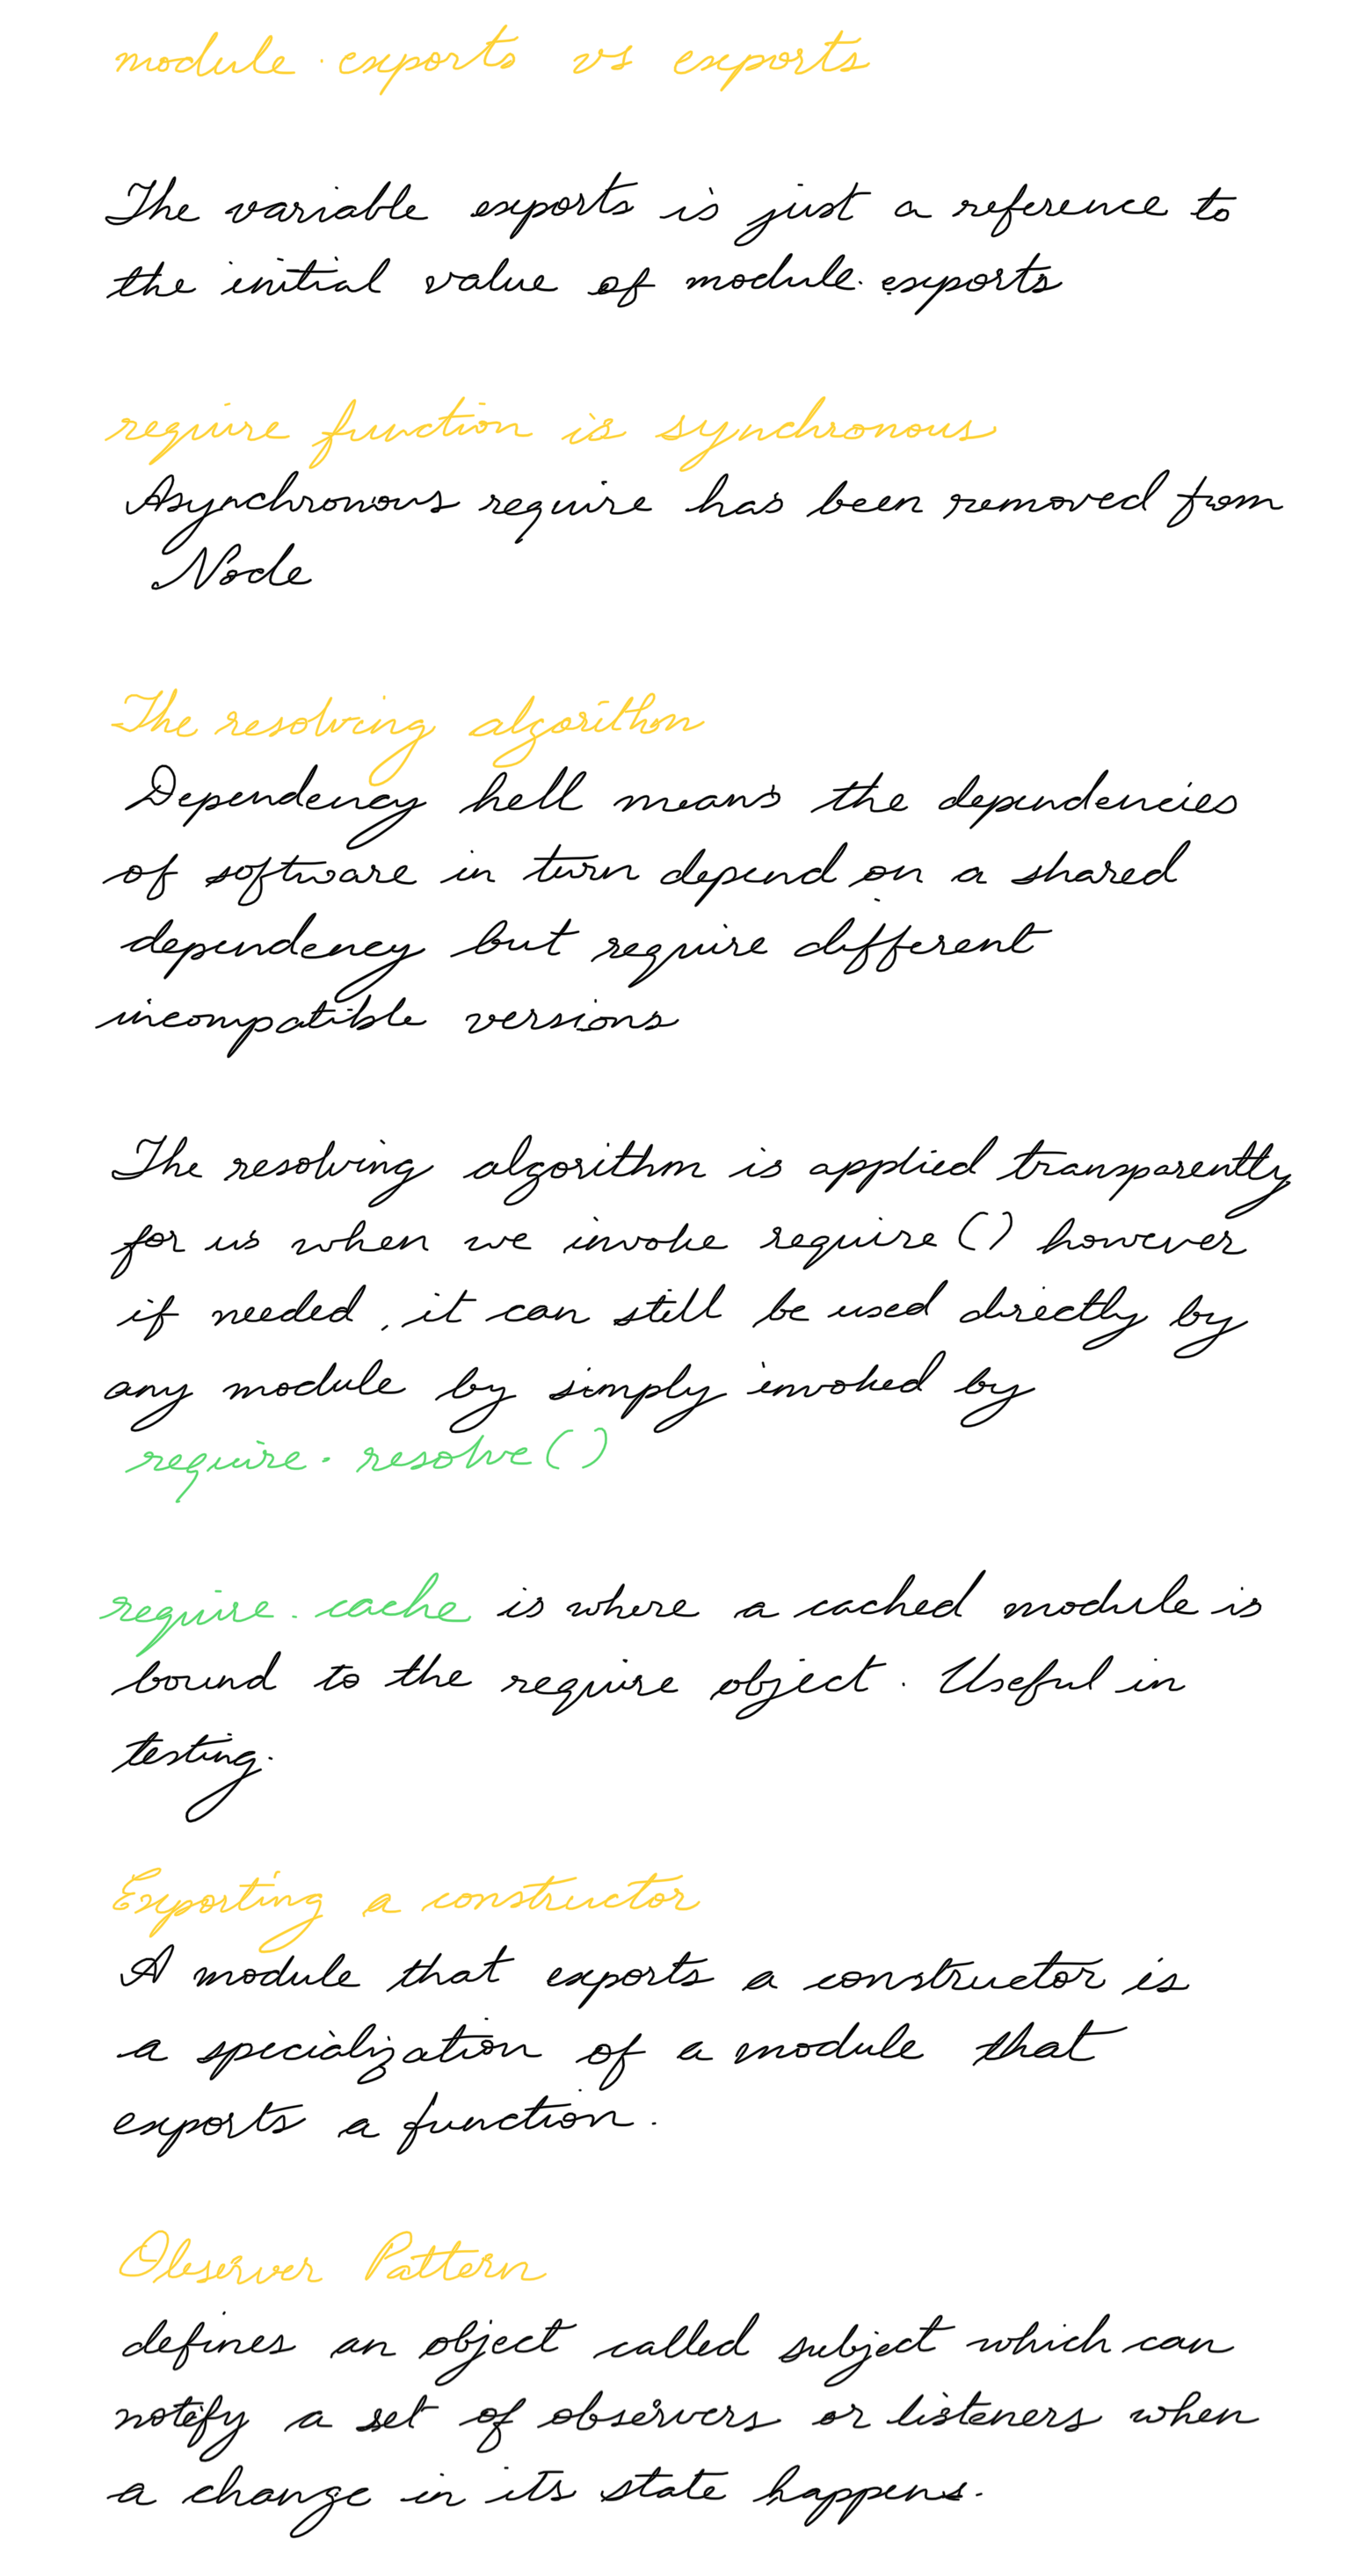 module.exports vs exports
The variable exports is just a reference to
the initial value of module.exports
require function is synchronous
Asynchronous require has been removed from
Node
The resolving algorithm
Dependency hell means the dependencies
of software in turn depend on a shared
dependency but require different
incompatible versions
The resolving algorithm is applied transparently
for us when we invoke require() however
if needed, it can still be used directly by
any module by simply invoked by
require.resolve()
require.cache is where a cached module is
bound to the require object. Useful in
testing.
Exporting a constructor
A module that exports a constructor is
a specialization of a module that
exports a function.
Observer Pattern
defines an object called subject which can
notify a set of observers or listeners when
a change in its state happens.